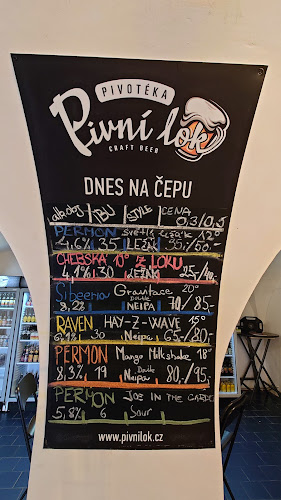 PIVOTÉKA
Pivní lok
CRAFT BEER
DNES NA ČEPU
alk.obj. / IBU / STYLE / CENA
0,3/0,5
PERMON světlý ležák 12°
4,6% 35 LEŽÁK 35/50,-
CHEBSKÁ 10° Z LOKU
4,1% 30 LEŽÁK 25,-/40,-
Sibeeria Gravitace 20°
8,2% Double NEIPA 70/85,-
RAVEN HAY-Z-WAVE 15°
6,1% 30 Neipa 65/80,-
PERMON Mango Milkshake 18°
8,3% 19 Double Neipa 80,/95,-
PERMON JOB IN THE GARDE
5,8% 6 Sour
www.pivnilok.cz